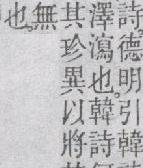 詩德明引韓
澤瀉也韓詩
其珍異以將
也。無